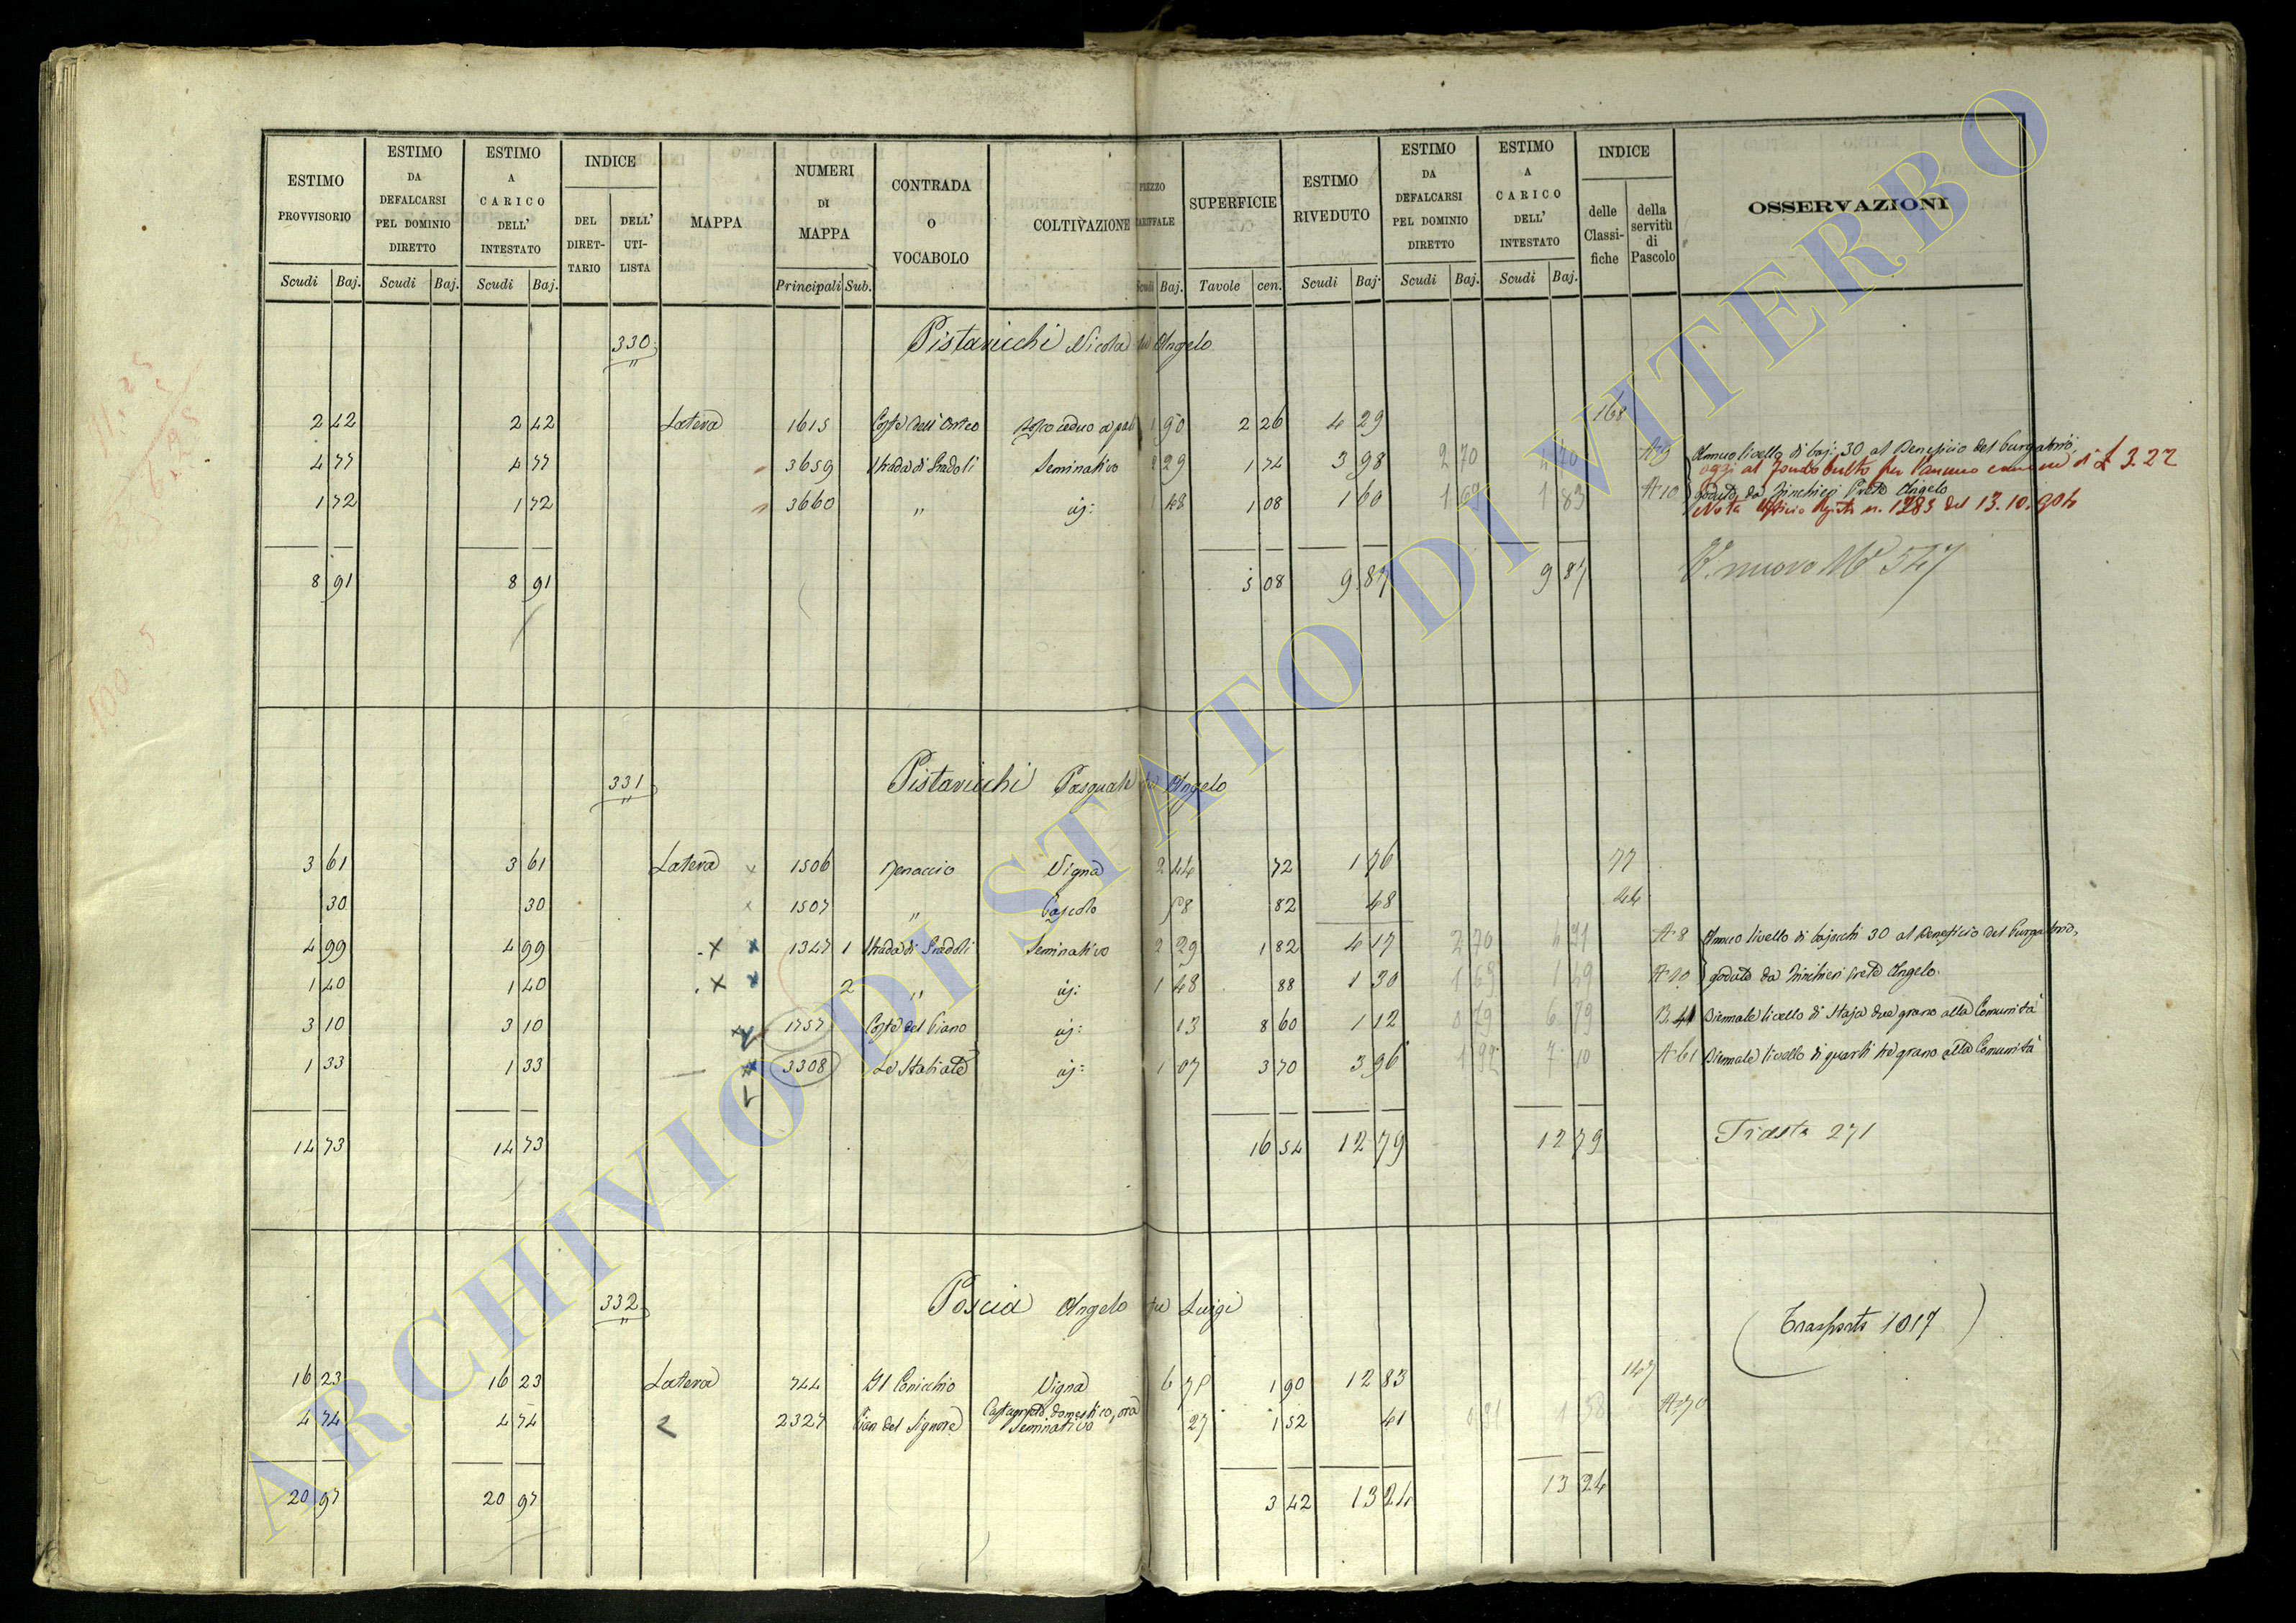 ESTIMO PROVVISORIO | ESTIMO DA DEFALCARSI PEL DOMINIO DIRETTO | ESTIMO A CARICO DELL' INTESTATO | INDICE | MAPPA | NUMERI DI MAPPA | CONTRADA O VOCABOLO | COLTIVAZIONE | PREZZO TARIFFALE | SUPERFICIE | ESTIMO RIVEDUTO | ESTIMO DA DEFALCARSI PEL DOMINIO DIRETTO | ESTIMO A CARICO DELL' INTESTATO | INDICE | OSSERVAZIONI
DEL DIRETTARIO | DELL' UTILISTA | delle Classifiche | della servitù di Pascolo
Scudi | Baj. | Scudi | Baj. | Scudi | Baj. | Principali | Sub. | Scudi | Baj. | Tavole | cen. | Scudi | Baj. | Scudi | Baj. | Scudi | Baj.
330 Pistavicchi Nicola fu Angelo
2 42 | 2 42 | Latera | 1615 | Coste dell' Orteo | Bosco ceduo a pal | 1 90 | 2 26 | 4 29 | 168
4 77 | 4 77 | 3659 | Strada di Gradoli | Seminativo | 2 29 | 1 74 | 3 98 | 2 70 | A 8 | Annuo livello di baj. 30 al Beneficio del Purgatorio,
oggi al fondo Culto per l'annuo canone di £ 3.22
1 72 | 1 72 | 3660 | " | id: | 1 48 | 1 08 | 1 60 | 1 69 | 1 83 | A 10 | goduto da Prete Angelo
Nota Ufficio Registro n. 1285 del 13.10.904
8 91 | 8 91 | 5 08 | 9 87 | 9 87 | V. nuovo No 547
331 Pistavicchi Pasquale fu Angelo
3 61 | 3 61 | Latera | x | 1506 | Menaccio | Vigna | 2 44 | 72 | 1 76 | 77
30 | 30 | x | 1507 | " | Pascolo | 58 | 82 | 48 | 44
4 99 | 4 99 | x x | 1347 | 1 | Strada di Gradoli | Seminativo | 2 29 | 1 82 | 4 17 | 2 70 | 4 21 | A 8 | Annuo livello di bajocchi 30 al Beneficio del Purgatorio,
1 40 | 1 40 | x x | 2 | " | id: | 1 48 | 88 | 1 30 | 1 69 | 1 49 | A 10 | goduto da Prete Angelo.
3 10 | 3 10 | 1757 | Coste del Piano | id: | 13 | 8 60 | 1 12 | 0 79 | 6 79 | B. 41 | Biennale livello di Staja due grano alla Comunità
1 33 | 1 33 | 3308 | Le Stallate | id: | 1 07 | 3 70 | 3 96 | 1 92 | 7 10 | A 61 | Biennale livello di quarti tre grano alla Comunità
14 73 | 14 73 | 16 54 | 12 79 | 12 79 | 271
332 Poscia Angelo fu Luigi
(Trasporto 1017)
16 23 | 16 23 | Latera | 744 | Il Conicchio | Vigna | 6 75 | 1 90 | 12 83 | 147
4 74 | 4 74 | 2327 | Pian del Signore | Castagneto domestico, ora Seminativo | 27 | 1 52 | 41 | A 70
20 97 | 20 97 | 3 42 | 13 24 | 13 24
ARCHIVIO DI STATO DI VITERBO